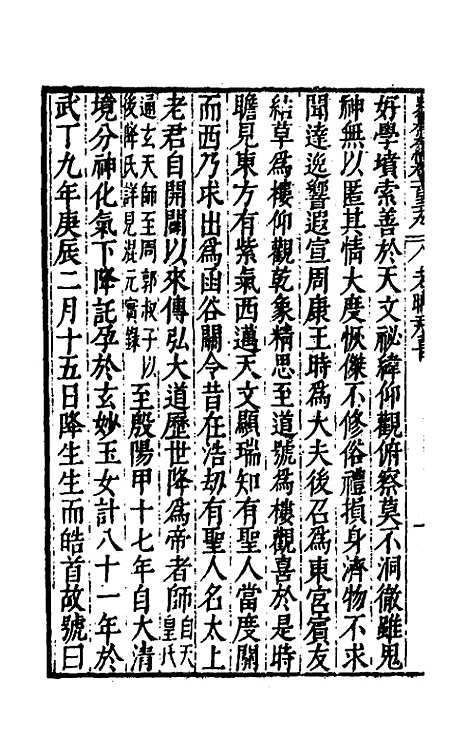 好學墳索善於天文祕緯仰觀俯察莫不洞徹雖鬼
神無以匿其情大度恢傑不修俗禮損身濟物不求
聞達逸響遐宣周康王時爲大夫後召爲東宮賓友
結草爲樓仰觀乾象精思至道號爲樓觀喜於是時
瞻見東方有紫氣西邁天文顯瑞知有聖人當度關
而西乃求出爲函谷關令昔在浩劫有聖人名太上
老君自開闢以來傳弘大道歷世降爲帝者師自天皇氏
遍玄天師至周郭叔子以後降氏詳見混元實錄至殷陽甲十七年自大清
境分神化氣下降託孕於玄妙玉女計八十一年於
武丁九年庚辰二月十五日降生生而皓首故號曰